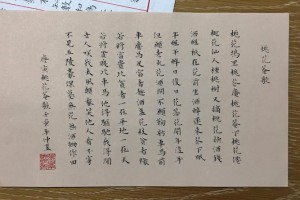 桃花菴歌
桃花塢里桃花菴桃花菴下桃花僊
桃花仙人種桃樹又摘桃花換酒錢
酒醒祇在花前坐酒醉還來花下眠
半醒半醉日復日花落花開年復年
但願老死花酒間不願鞠躬車馬前
車塵馬足富者趣酒盞花枝貧者緣
若將富貴比貧者一在平地一在天
若將貧賤比車馬他得驅馳我得閒
世人咲我太風顛我咲他人看不穿
不見五陵豪傑墓無花無酒鋤作田
唐寅桃花菴歌壬寅年仲夏